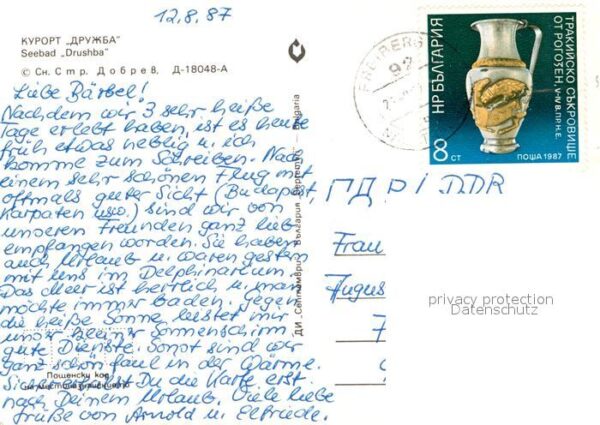 12.8.87
КУРОРТ „ДРУЖБА"
Seebad „Drushba"
© Сн. Стр. Добрев, Д-18048-А
Liebe Bärbel!
Nachdem wir 3 sehr heiße
Tage erlebt haben, ist es heute
früh etwas neblig u. ich
komme zum Schreiben. Nach
einem sehr schönen Flug mit
oftmals guter Sicht (Budapest,
Karpaten usw.) sind wir von
unseren Freunden ganz lieb
empfangen worden. Sie haben
auch Urlaub u. waren gestern
mit uns im Delphinarium.
Das Meer ist herrlich u. man
möchte immer baden. Gegen
die heiße Sonne leistet mir
unser kleiner Sonnenschirm
gute Dienste. Sonst sind wir
ganz schön faul in der Wärme.
Sicher erhältst Du die Karte erst
nach Deinem Urlaub. Viele liebe
Grüße von Arnold u. Elfriede.
Пощенски код
на местоназначението
ДИ „Септември" България
Bulgaria
FREIBERG
92
НР БЪЛГАРИЯ
ТРАКИЙСКО СЪКРОВИЩЕ
ОТ РОГОЗЕН, V-IV В. ПР. Н. Е.
8 СТ
ПОЩА 1987
ГДР / DDR
Frau
Augus
privacy protection
Datenschutz